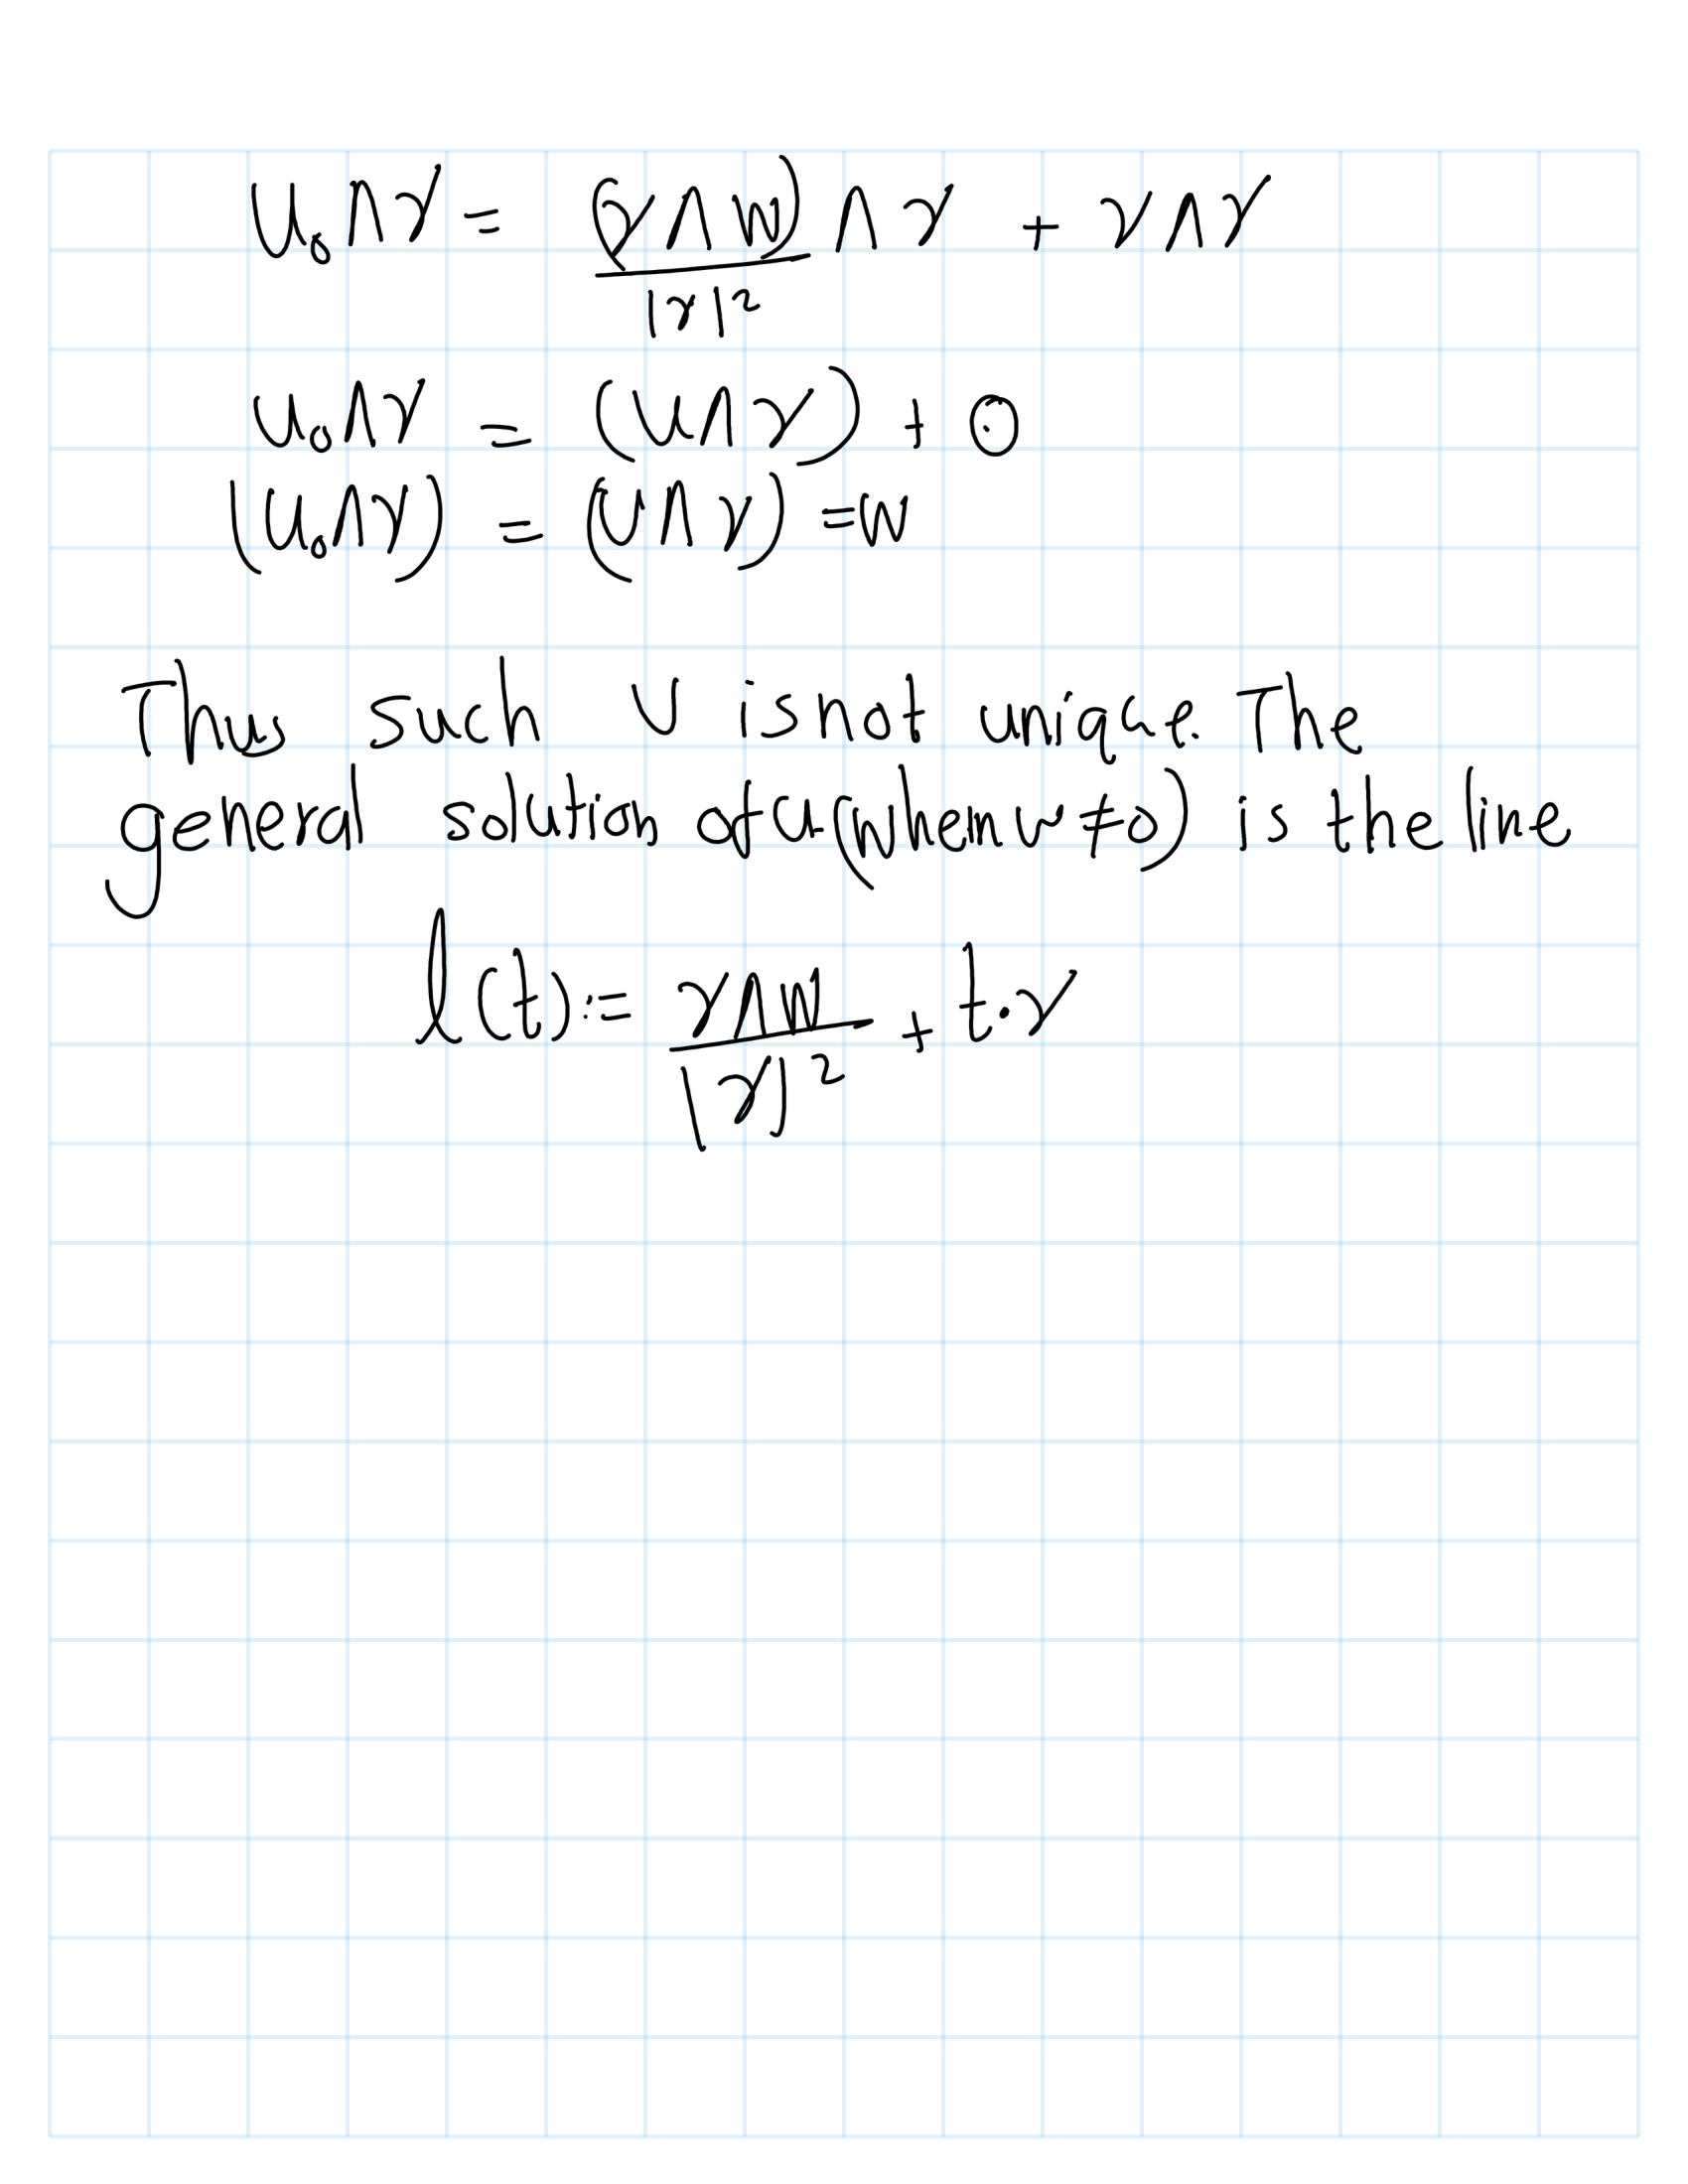 u₀∧v = (v∧w)/|v|² ∧ v + v∧v
u₀∧v = (u∧v) + 0
(u₀∧v) = (u∧v) = w
Thus such u is not unique. The
general solution of u (when w ≠ 0) is the line
l(t) := v∧w/|v|² + t·v